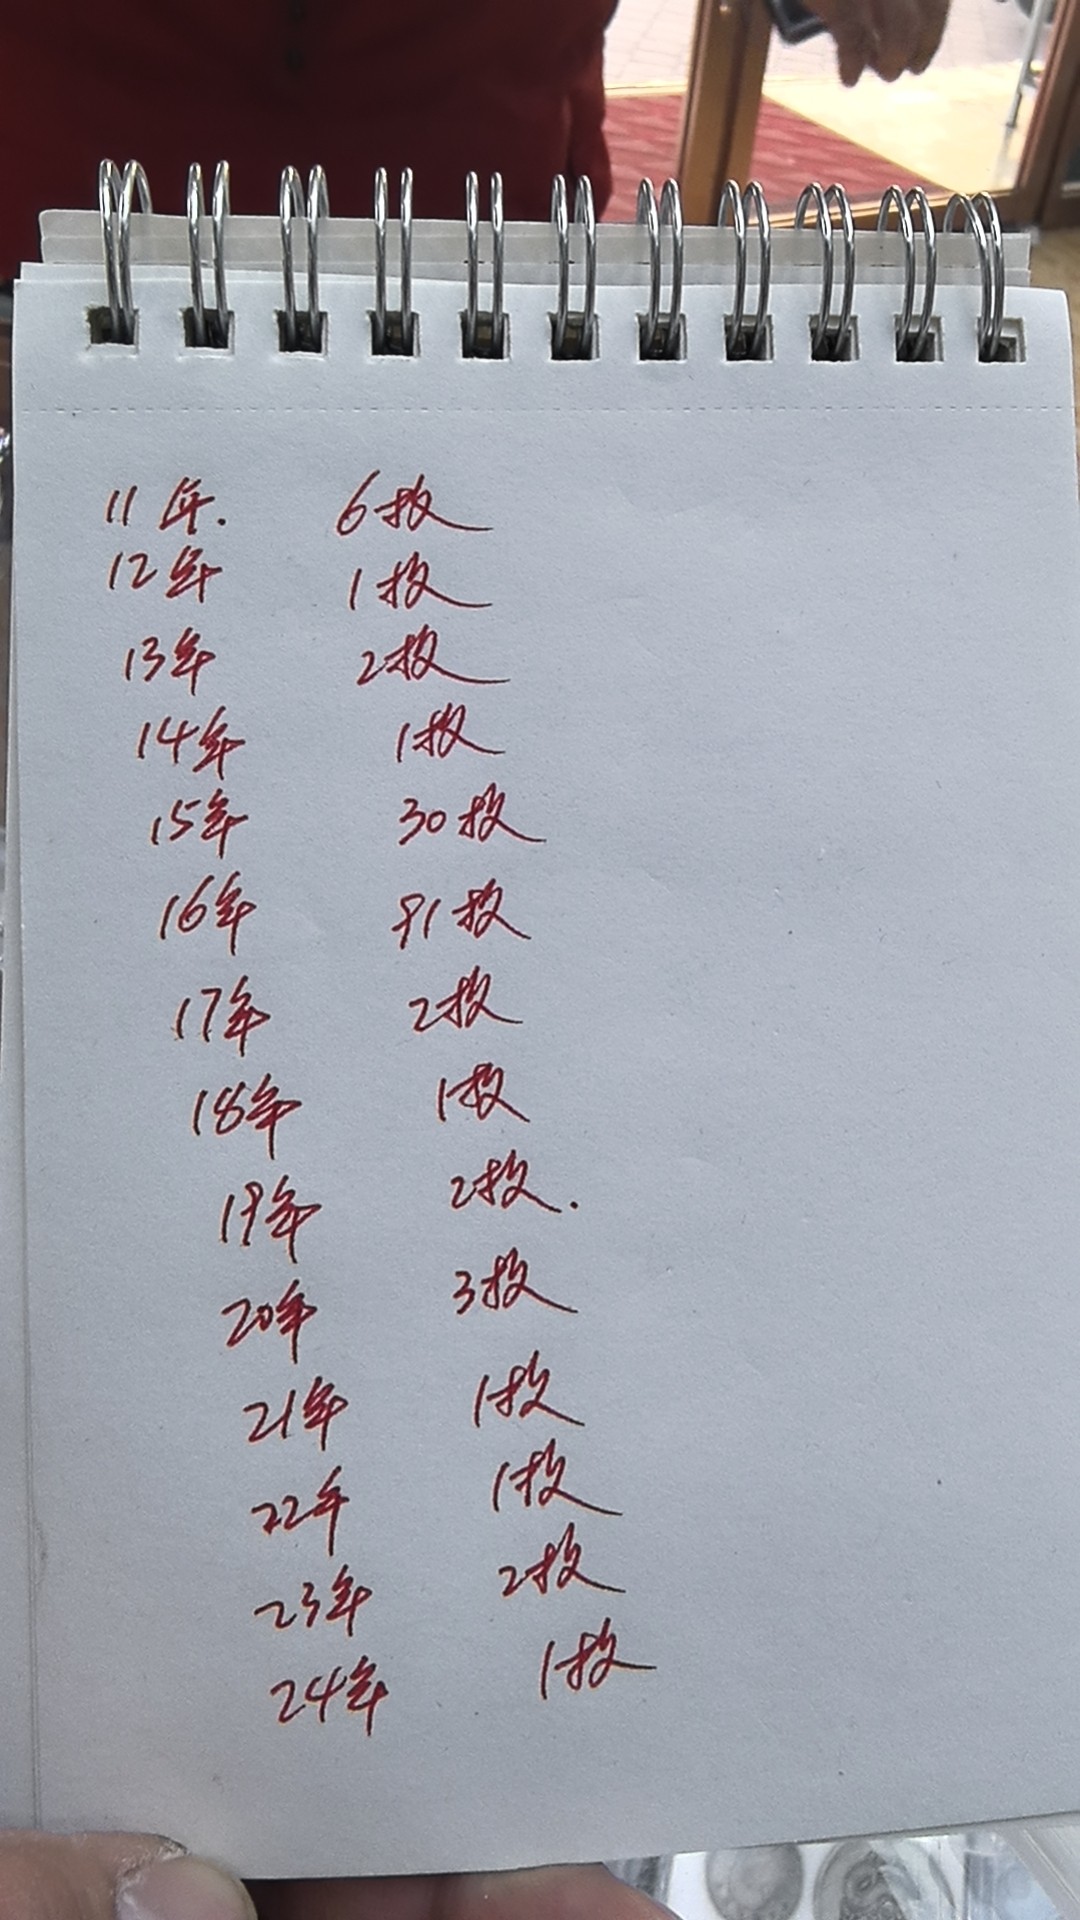 11年. 6枚
12年 1枚
13年 2枚
14年 1枚
15年 30枚
16年 91枚
17年 2枚
18年 1枚
19年 2枚.
20年 3枚
21年 1枚
22年 1枚
23年 2枚
24年 1枚